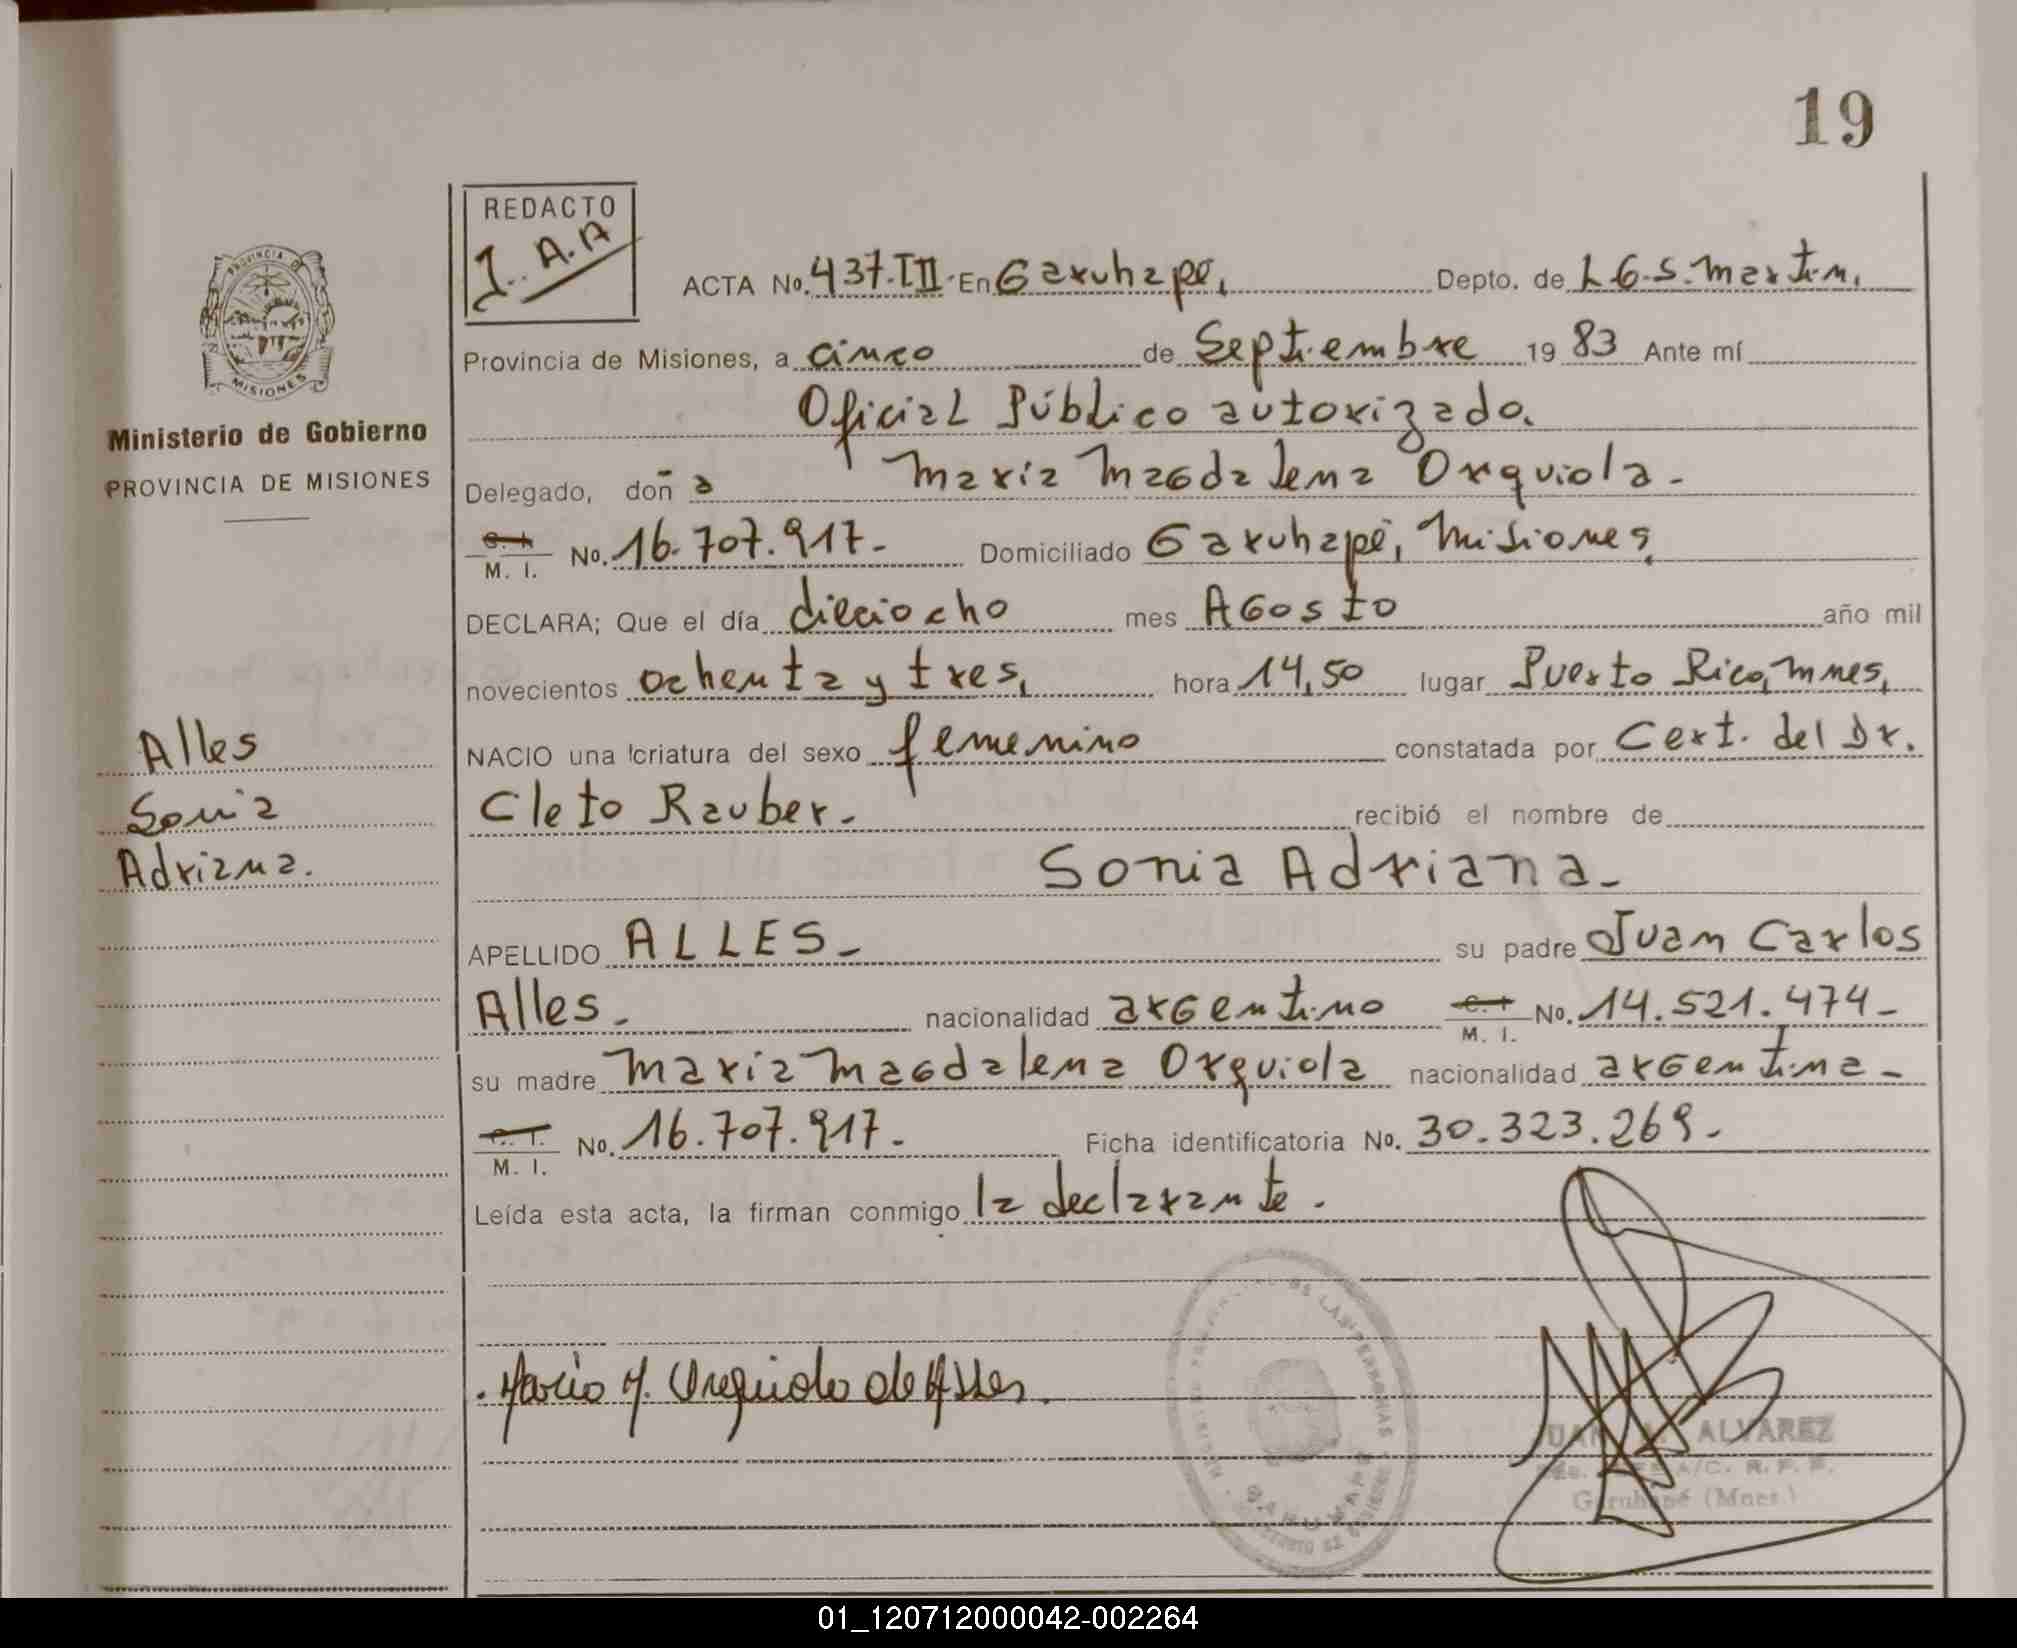 19
REDACTO
J. A. A
PROVINCIA D
MISIONES
Ministerio de Gobierno
PROVINCIA DE MISIONES
ACTA No. 437.III. En Garuhapé, Depto. de L G. S. Martin,
Provincia de Misiones, a cinco de Septiembre 19 83 Ante mí
Oficial Público autorizado.
Delegado, doñ a María Magdalena Orquiola.-
M. I. No. 16.707.917.- Domiciliado Garuhapé, Misiones,
DECLARA; Que el día dieciocho mes Agosto año mil
novecientos ochenta y tres, hora 14,50 lugar Puerto Rico, Mnes,
NACIO una criatura del sexo femenino constatada por Cert. del Dr.
Cleto Rauber.- recibió el nombre de
Sonia Adriana.-
APELLIDO ALLES.- su padre Juan Carlos
Alles.- nacionalidad argentino C. I. M. I. No. 14.521.474.-
su madre María Magdalena Orquiola nacionalidad argentina.-
M. I. No. 16.707.917.- Ficha identificatoria No. 30.323.269.-
Leída esta acta, la firman conmigo la declarante.-
Alles
Sonia
Adriana.
Maria M. Orquiola de Alles.
DE LAS PERSONAS
GARUHAPE
JUAN A. ALVAREZ
A/C. R. P. P.
Garuhapé (Mnes.)
01_120712000042-002264